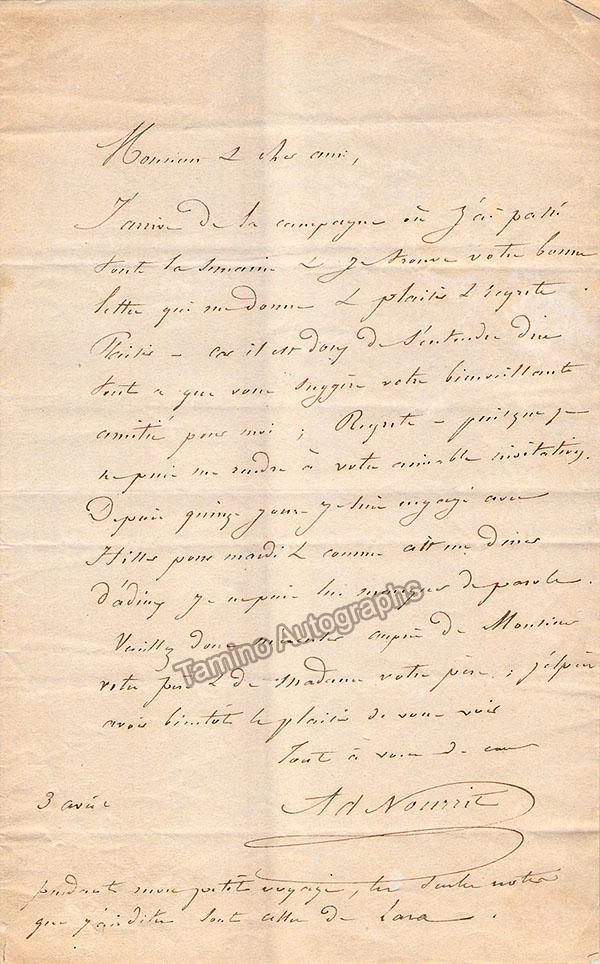 Monsieur & cher ami,
J'arrive de la campagne où j'ai passé
toute la semaine & je trouve votre bonne
lettre qui me donne & plaisir & regrets.
Plaisir – car il est doux de s'entendre dire
tout ce que vous suggère votre bienveillante
amitié pour moi ; Regrets – puisque je
ne puis me rendre à votre aimable invitation.
Depuis quinze jours je suis engagé avec
Hiller pour mardi & comme c'est un dîner
d'adieux je ne puis lui manquer de parole.
Veuillez donc auprès de Monsieur
votre père & de Madame votre ; j'espère
avoir bientôt le plaisir de vous voir
Tout à vous de cœur
Ad Nourrit
3 avril
pendant mon petit voyage, les seules notes
que j'ai dites sont celles de Lara.
Tamino Autographs